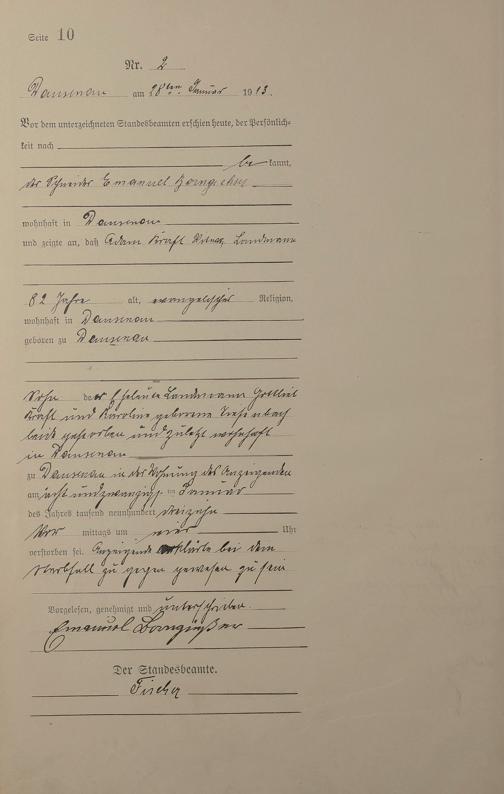 Seite 10
Nr. 2
Dausenau am 28ten Januar 1913.
Vor dem unterzeichneten Standesbeamten erschien heute, der Persönlich-
keit nach
be kannt,
der Schneider Emanuel
wohnhaft in Dausenau
und zeigte an, daß Adam Kraft Landmann
82 Jahre alt, evangelischer Religion,
wohnhaft in Dausenau
geboren zu Dausenau
Sohn der Eheleute Landmann Gottlieb
Kraft und Karoline geborene
beide gestorben und zuletzt wohnhaft
in Dausenau
zu Dausenau in der Wohnung des Anzeigenden
am acht und zwanzigsten Januar
des Jahres tausend neunhundert dreizehn
Vor mittags um vier Uhr
verstorben sei. Anzeigende erklärte bei dem
Sterbfall zu gegen gewesen zu sein
Vorgelesen, genehmigt und unterschrieben.
Emanuel
Der Standesbeamte.
Fischer